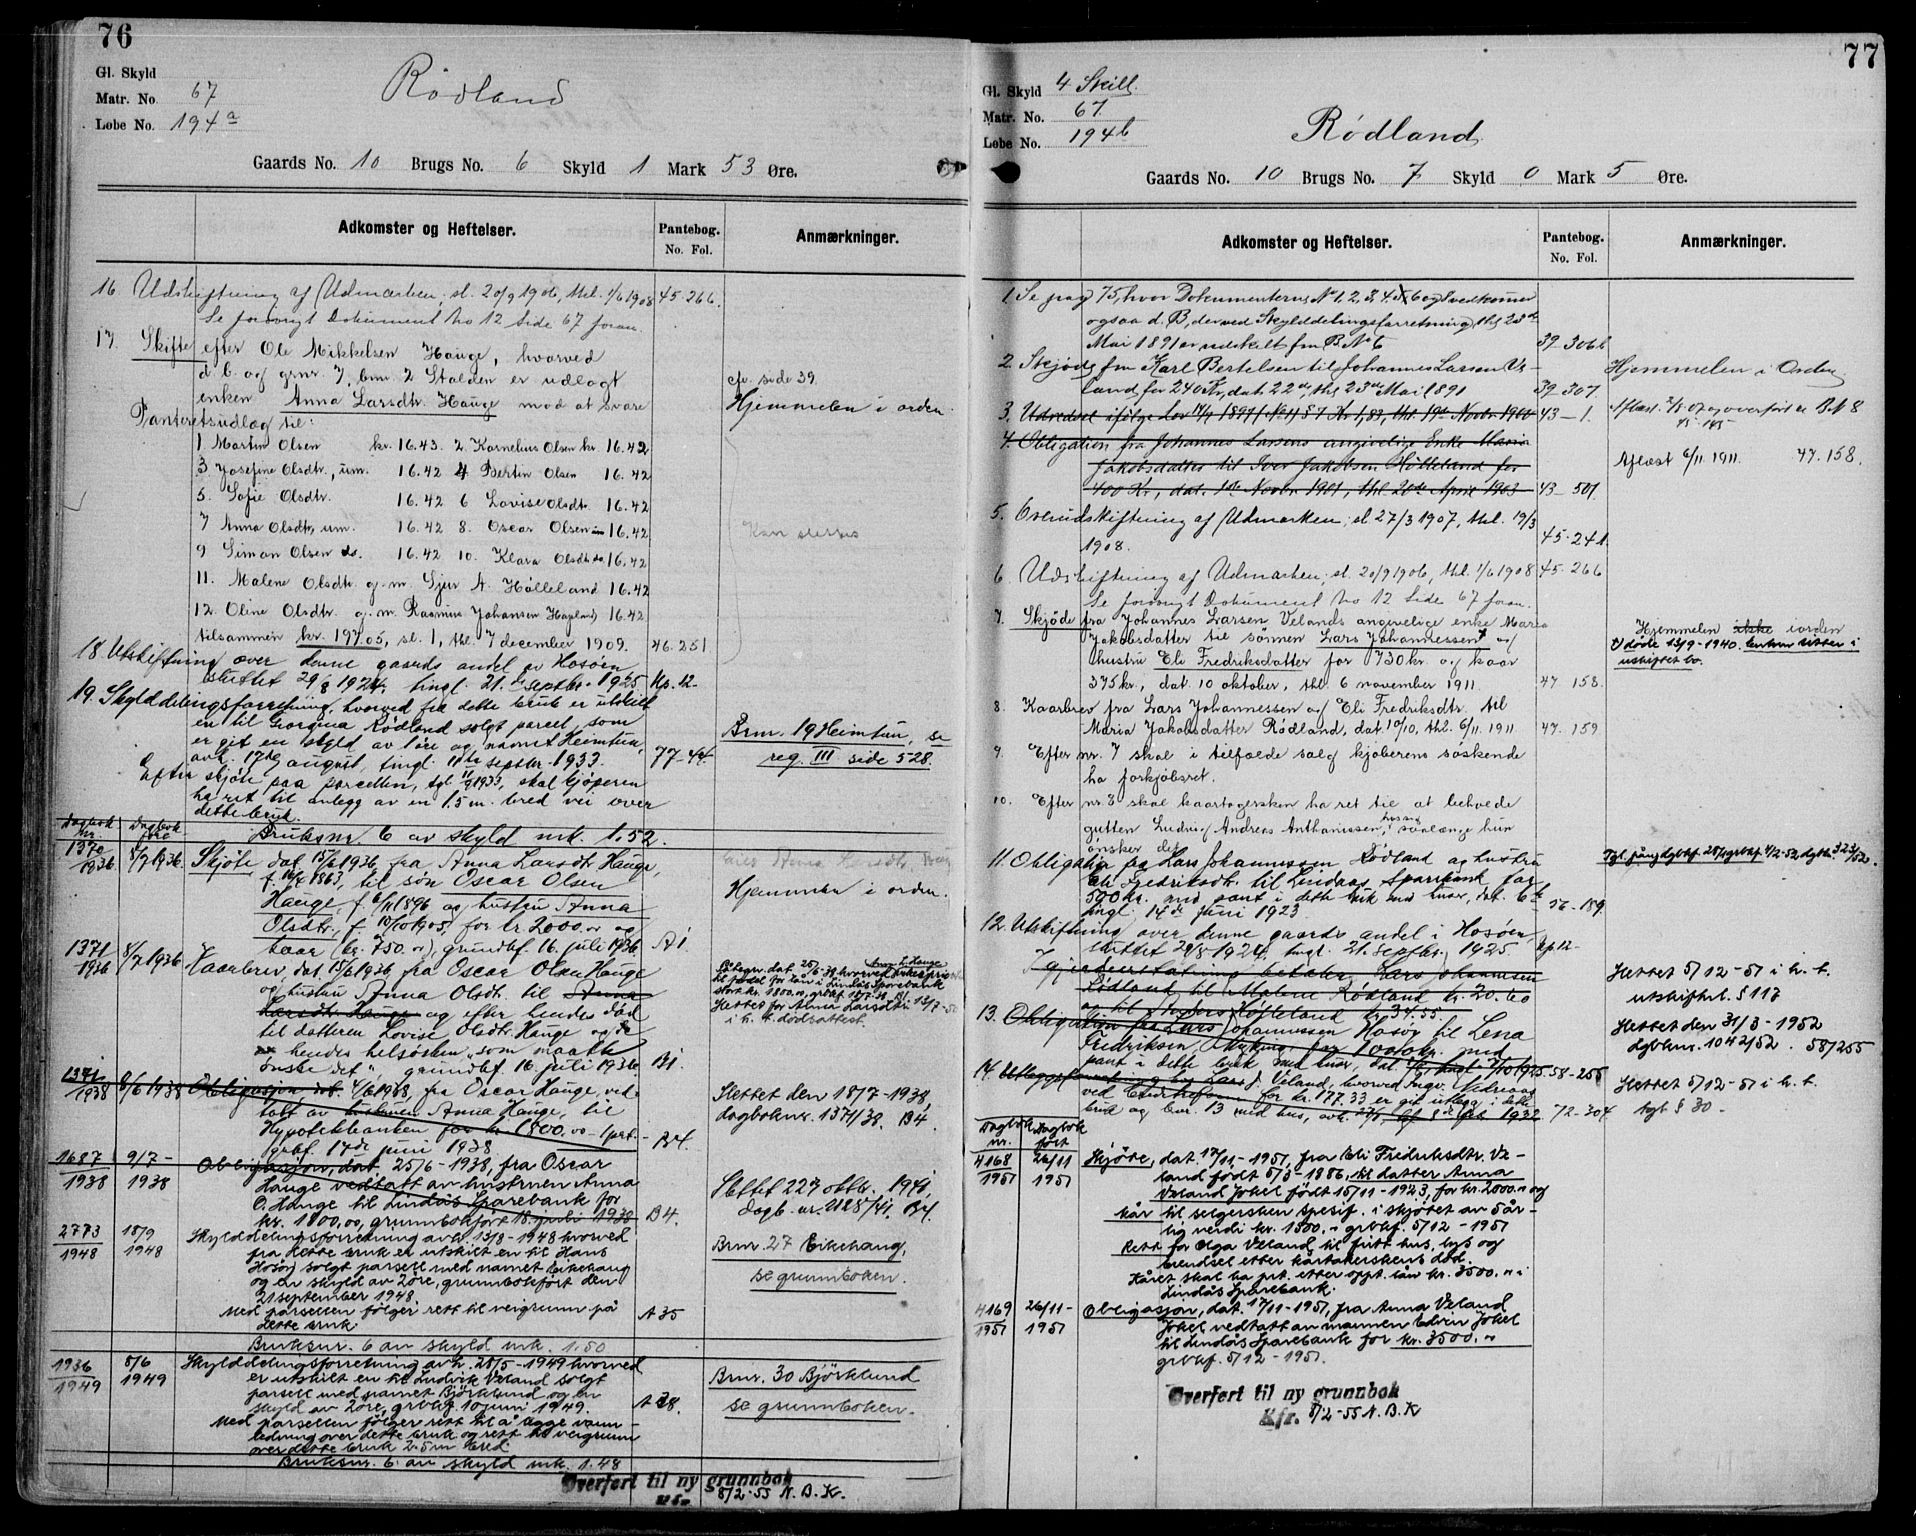 76
Gl. Skyld
Matr. No. 67
Løbe No. 194a
Rødland
Gaards No. 10 Brugs No. 6 Skyld 1 Mark 53 Øre.
Adkomster og Heftelser.
Pantebog. No. Fol.
Anmærkninger.
16 Udskiftning af Udmarken, sl. 20/9 1906, thl. 1/6 1908 45-266.
Se forøvrigt Dokument No 12 Side 67 foran.
17. Skifte efter Ole Mikkelsen Hauge, hvorved
d. b. og grnr. 7, brn. 2 Stalden er udlagt
enken Anna Larsdtr. Hauge mod at svare
Panteretsudlæg til:
cfr. side 39.
Hjemmelen i orden.
1 Martin Olsen kr. 16.43. 2 Kornelius Olsen kr. 16.42
3 Josefine Olsdtr., um. 16.42 4 Bertin Olsen 16.42
5. Sofie Olsdtr. 16.42 6 Lovise Olsdtr. 16.42
7 Anna Olsdtr, um. 16.42 8. Oscar Olsen um 16.42
9 Simon Olsen do. 16.42 10. Klara Olsdtr. do 16.42
11. Malene Olsdtr. g. m. Sjur A. Hølleland 16.42
12. Oline Olsdtr. g. m. Rasmus Johansen Hopland 16.42
tilsammen kr. 197.05, sl. 1, thl. 7 december 1909. 46.251
Kan slettes
18. Utskiftning over denne gaards andel av Hosøen
sluttet 29/8 1924, tingl. 21. septbr. 1925 Up. 12-
19. Skylddelingsforretning, hvorved fra dette bruk er utskilt
en til Georgina Rødland solgt parcel, som
er git en skyld av 1 øre og navnet Heimtun,
avh. 17de august, tingl. 11te septbr. 1933. 77-44
Brnr. 19 Heimtun, se
reg. III side 528.
Efter skjøte paa parcellen, tgl. 11/9 1933, skal kjøperen
ha ret til anlegg av en 1.5 m. bred vei over
dette bruk.
Dagbok nr. Dagbok ført
Bruksnr. 6 av skyld mk. 1.52.
1370/1936 8/7 1936 Skjøte dat. 15/6 1936 fra Anna Larsdtr. Hauge,
f. 1863, til søn Oscar Olsen
Hauge, f. 1896 og hustru Anna
Olsdtr., f. 10/10 1905, for kr. 2000.00 og
kaar (kr. 750.00), grundbf. 16. juli 1936. A1.
Hjemmelen i orden.
1371/1936 8/7 1936 Kaarbrev, dat. 15/6 1936 fra Oscar Olsen Hauge
og hustru Anna Olsdtr. til Anna
Larsdtr. Hauge og efter hendes død
til datteren Lovise Olsdtr. Hauge og de
av hendes helsøsken "som maatte
ønske det", grundbf. 16. juli 1936. B1.
Slettet for Anna Larsdtr.
i h. t. dødsattest.
1371/1938 8/6 1938 Obligasjon, dat. 4/6 1938, fra Oscar Hauge, ved-
tatt av hustruen Anna Hauge, til
Hypotekbanken for kr. 1800.00 - 1 prt. -
grbf. 17de juni 1938 B4.
Slettet den 18/7-1938,
dagboknr. 1371/38. B4.
1687/1938 9/7-1938 Obligasjon, dat. 25/6-1938, fra Oscar
Hauge vedtatt av hustruen Anna
O. Hauge til Lindås Sparebank for
kr. 1800,00, grunnbokført 18. juli 1938 B4.
Slettet 22/7 oktbr. 1941,
dagb. nr. 2128/41. B4.
2773/1948 18/9 1948 Skylddelingsforretning avh. 13/8-1948 hvorved
fra dette bruk er utskilt en til Hans
Hosøy solgt parsell med navnet Eikehaug
og en skyld av 2 øre, grunnbokført den
21 september 1948.
Med parsellen følger rett til veigrunn på
dette bruk. A35
Brnr. 27 Eikehaug,
se grunnboken.
Bruksnr. 6 av skyld mk. 1.50
1936/1949 8/6 1949 Skylddelingsforretning avh. 28/5-1949 hvorved
er utskilt en til Ludvik Veland solgt
parsell med navnet Björklund og en
skyld av 2 øre, grbhg. 10 juni 1949. A38.
Med parsellen følger rett til å legge vann-
ledning over dette bruk og rett til veigrunn
over dette bruk 2.5 m bred.
Brnr. 30 Björklund
se grunnboken.
Bruksnr. 6 av skyld mk. 1.48
Overført til ny grunnbok
8/2-55 N. B. Kr.
77
Gl. Skyld 4 Skill.
Matr. No. 67.
Løbe No. 194b
Rødland
Gaards No. 10 Brugs No. 7 Skyld 0 Mark 5 Øre.
Adkomster og Heftelser.
Pantebog. No. Fol.
Anmærkninger.
1. Se pag 75, hvor Dokumenterne No 1, 2, 3, 4, 5, 6 og 8 vedkommer
ogsaa d. B, der ved Skylddelingsforretning, thl. 23de
Mai 1891 er udskilt fra B. No 6 39-306b
2 Skjøde fra Karl Bertelsen til Johannes Larsen Ve-
land for 240 Kr, dat. 22de, thl. 23de Mai 1891 39-307.
Hjemmelen i Orden
3. Udredsel ifølge Lov 1897 No 11 § 7 Kr 1,83, thl. 19de Novbr 1900 43-1.
4. Obligation fra Johannes Larsens angivelige Enke Maria
Jakobsdatter til Iver Jakobsen Hølleland for
400 Kr, dat. 1ste Novbr 1901, thl. 20de April 1903 43-501.
Aflæst 6/11 1911. 47.158.
5. Overudskiftning af Udmarken, sl 27/3 1907, thl. 19/3
1908. 45-241.
6. Udskiftning af Udmarken, sl. 20/9 1906, thl. 1/6 1908 45-266
Se forøvrigt Dokument No 12 Side 67 foran.
7. Skjøde fra Johannes Larsen Velands angivelige enke Maria
Jakobsdatter til sønnen Lars Johannessen og
hustru Eli Fredriksdatter for 730 kr. og kaar
375 kr., dat 10 oktober, thl. 6 november 1911. 47 158.
Hjemmelen ikke iorden
† døde 13/9-1940. Enken sitter i
uskiftet bo.
8. Kaarbrev fra Lars Johannessen og Eli Fredriksdtr. til
Maria Jakobsdatter Rødland, dat 10/10, thl. 6/11 1911 47. 159
9. Efter nr. 7 skal i tilfælde salg kjøberens søskende
ha forkjøbsret.
10. Efter nr. 8 skal kaartagersken ha ret til at behvede
gutten Ludvig Andreas Anthonissen hos sig saalænge hun
ønsker det.
11. Obligasjon fra Lars Johannessen Rødland og hustru
Eli Fredriksdtr. til Lindaas Sparebank for
500 kr. med pant i dette bruk med huser, dat. 6te
tingl. 14de juni 1923 56-189.
12. Utskiftning over denne gaards andel i Hosøen,
sluttet 29/8 1924, tingl. 21. septbr. 1925. Up. 12-
I gjerdeerstatning betaler Lars Johannesen
Rødland til Malene Rødland kr. 20.60
og til Anders Hølleland kr. 34.55.
Slettet 5/12-51 i h. t.
utskiftsl. § 117
13. Obligation fra Lars Johannessen Hosøy til Lena
Fredriksen, Myking for 1000 kr. med
pant i dette bruk med huser, dat. tingl. 7/10 1925. 58-255
Slettet den 31/3-1952
dgbknr. 1042/52. 58/255
14. Utleggsforretning hos Lars J. Veland, hvorved Ingv. Vedraas
ved for kr. 177.33 er git utlegg i dette
bruk og brnr. 13 med hus, avh. 1932. 72-304
Slettet 5/12-51 i h. t.
tgl § 30.
Dagbok nr. Dagbok ført
4168/1951 26/11 1951 Skjøte, dat. 17/11-1951 fra Eli Fredriksdtr. Ve-
land født 5/3-1886, til datter Anna
Veland Jokel født 15/11-1923, for kr. 2000.00 og
kår til selgersken spesif. i skjøtet av 5 år-
lig verdi kr. 1500.- grbkf. 5/12-1951
Rett for Olga Veland til fritt hus, lys og
brendsel etter kårtakerskens død.
Kåret skal ha prt. etter oppt. lån kr. 3500.00 i
Lindås Sparebank.
4169/1951 26/11-1951 Obligasjon, dat. 17/11-1951, fra Anna Veland
Jokel vedtatt av mannen Edvin Jokel
til Lindås Sparebank for kr. 3500.00
grbkf. 5/12-1951.
Overført til ny grunnbok
Kfr. 8/2-55 N. B. Kr